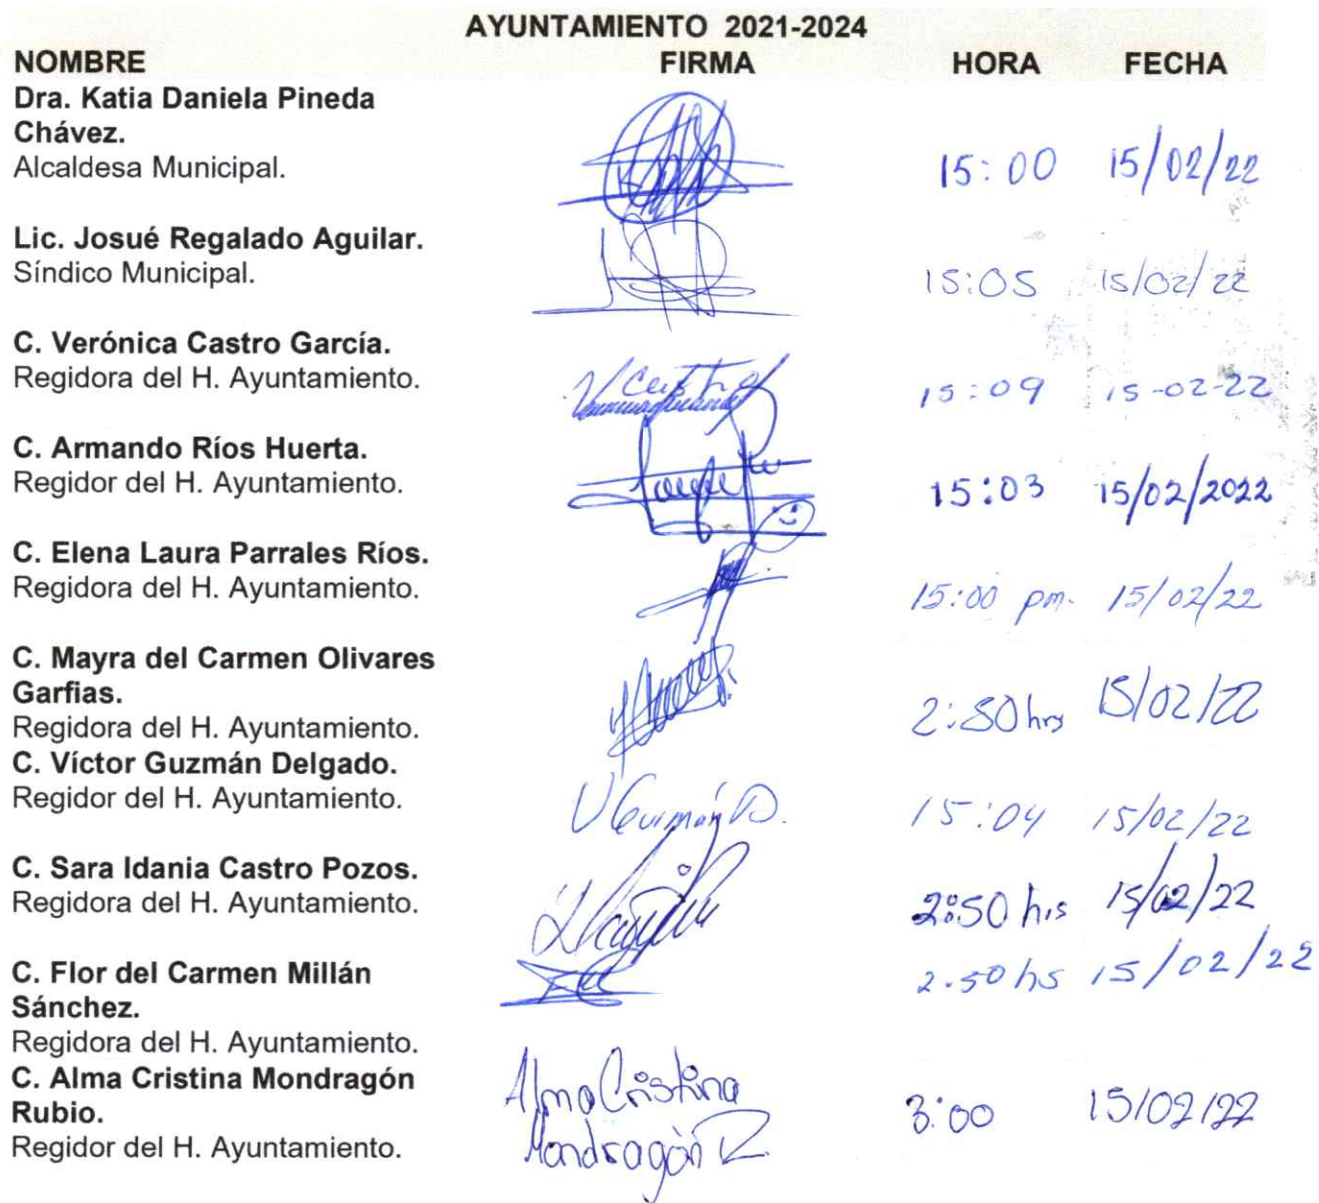 AYUNTAMIENTO 2021-2024
NOMBRE FIRMA HORA FECHA
Dra. Katia Daniela Pineda
Chávez.
Alcaldesa Municipal. 15:00 15/02/22
Lic. Josué Regalado Aguilar.
Síndico Municipal. 15:05 15/02/22
C. Verónica Castro García.
Regidora del H. Ayuntamiento. V Castro 15:09 15-02-22
C. Armando Ríos Huerta.
Regidor del H. Ayuntamiento. 15:03 15/02/2022
C. Elena Laura Parrales Ríos.
Regidora del H. Ayuntamiento. 15:00 pm. 15/02/22
C. Mayra del Carmen Olivares
Garfias.
Regidora del H. Ayuntamiento. 2:50 hrs 15/02/22
C. Víctor Guzmán Delgado.
Regidor del H. Ayuntamiento. V Guzmán D. 15:04 15/02/22
C. Sara Idania Castro Pozos.
Regidora del H. Ayuntamiento. 2:50 hrs 15/02/22
C. Flor del Carmen Millán 2.50 hs 15/02/22
Sánchez.
Regidora del H. Ayuntamiento.
C. Alma Cristina Mondragón Alma Cristina
Rubio. 3:00 15/02/22
Regidor del H. Ayuntamiento. Mondragón R.